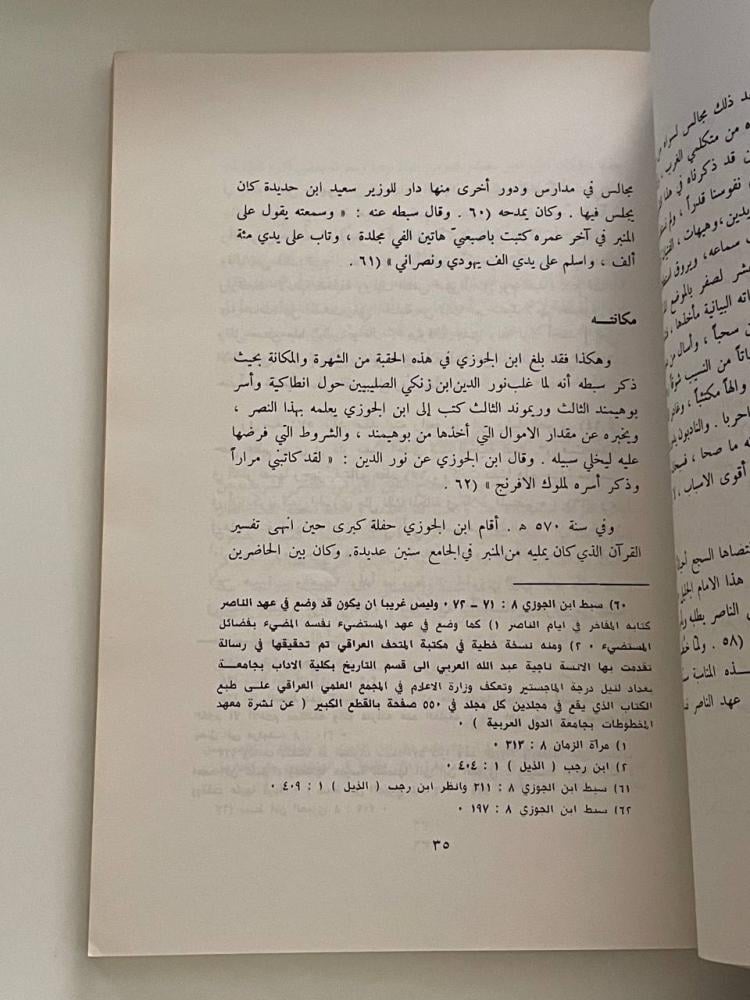 مجالس في مدارس ودور أخرى منها دار للوزير سعيد ابن حديدة كان
يجلس فيها . وكان يمدحه (٦٠ . وقال سبطه عنه : « وسمعته يقول على
المنبر في آخر عمره كتبت باصبعيّ هاتين الفي مجلدة ، وتاب على يدي مئة
ألف ، واسلم على يدي الف يهودي ونصراني » (٦١ .
مكانتــه
وهكذا فقد بلغ ابن الجوزي في هذه الحقبة من الشهرة والمكانة بحيث
ذكر سبطه أنه لما غلب نور الدين ابن زنكي الصليبيين حول انطاكية وأسر
بوهيمند الثالث وريموند الثالث كتب إلى ابن الجوزي يعلمه بهذا النصر ،
ويخبره عن مقدار الاموال التي أخذها من بوهيمند ، والشروط التي فرضها
عليه ليخلي سبيله . وقال ابن الجوزي عن نور الدين : « لقد كاتبني مراراً
وذكر أسره لملوك الافرنج » (٦٢ .
وفي سنة ٥٧٠ هـ . أقام ابن الجوزي حفلة كبرى حين انهى تفسير
القرآن الذي كان يمليه من المنبر في الجامع سنين عديدة. وكان بين الحاضرين
٦٠) سبط ابن الجوزي ٨ : ٧١ – ٧٢ وليس غريبا ان يكون قد وضع في عهد الناصر
كتابه المفاخر في ايام الناصر ١) كما وضع في عهد المستضيء نفسه المضيء بفضائل
المستضيء ٢٠) ومنه نسخة خطية في مكتبة المتحف العراقي تم تحقيقها في رسالة
تقدمت بها الانسة ناجية عبد الله العربي الى قسم التاريخ بكلية الاداب بجامعــة
بغداد لنيل درجة الماجستير وتعكف وزارة الاعلام في المجمع العلمي العراقي علــى طبع
الكتاب الذي يقع في مجلدين كل مجلد في ٥٥٠ صفحة بالقطع الكبير ( عن نشرة معهد
المخطوطات بجامعة الدول العربية ) ٠
١) مرآة الزمان ٨ : ٣١٣ ٠
٢) ابن رجب ( الذيل ) ١ : ٤٠٤ ٠
٦١) سبط ابن الجوزي ٨ : ٣١١ وانظر ابن رجب ( الذيل ) ١ : ٤٠٩ ٠
٦٢) سبط ابن الجوزي ٨ : ١٩٧ ٠
٣٥